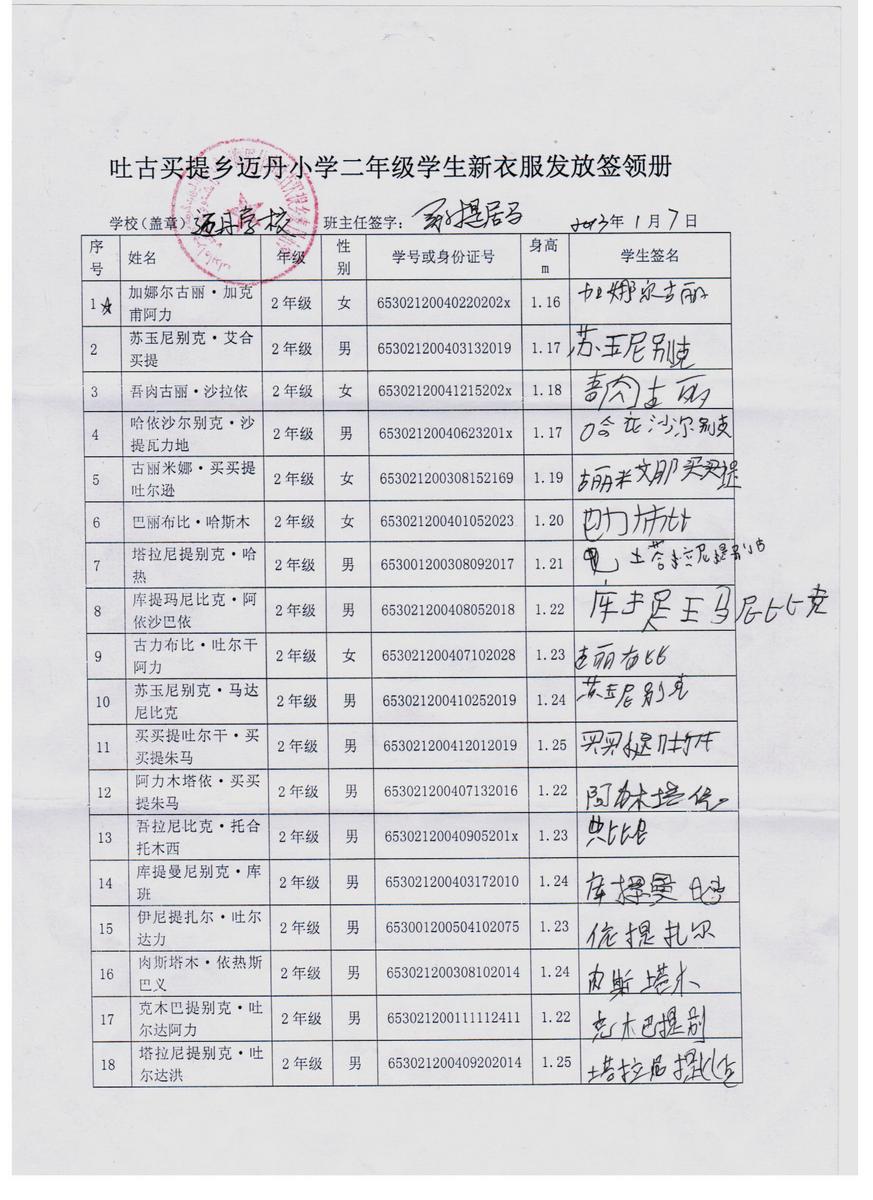 吐古买提乡迈丹小学二年级学生新衣服发放签领册
学校(盖章) 迈丹学校 班主任签字: 2013年 1月 7日
序号 姓名 年级 性别 学号或身份证号 身高m 学生签名
1 加娜尔古丽·加克甫阿力 2年级 女 65302120040220202x 1.16 加娜尔古丽
2 苏玉尼别克·艾合买提 2年级 男 653021200403132019 1.17 苏玉尼别克
3 吾肉古丽·沙拉依 2年级 女 65302120041215202x 1.18
4 哈依沙尔别克·沙提瓦力地 2年级 男 65302120040623201x 1.17 哈衣沙尔别克
5 古丽米娜·买买提吐尔逊 2年级 女 653021200308152169 1.19 古丽米娜买买提
6 巴丽布比·哈斯木 2年级 女 653021200401052023 1.20
7 塔拉尼提别克·哈热 2年级 男 653001200308092017 1.21
8 库提玛尼比克·阿依沙巴依 2年级 男 653021200408052018 1.22 库提玛尼比克
9 古力布比·吐尔干阿力 2年级 女 653021200407102028 1.23
10 苏玉尼别克·马达尼比克 2年级 男 653021200410252019 1.24 苏玉尼别克
11 买买提吐尔干·买买提朱马 2年级 男 653021200412012019 1.25
12 阿力木塔依·买买提朱马 2年级 男 653021200407132016 1.22
13 吾拉尼比克·托合托木西 2年级 男 65302120040905201x 1.23
14 库提曼尼别克·库班 2年级 男 653021200403172010 1.24 库提曼
15 伊尼提扎尔·吐尔达力 2年级 男 653001200504102075 1.23 依提扎尔
16 肉斯塔木·依热斯巴义 2年级 男 653021200308102014 1.24 肉斯塔木
17 克木巴提别克·吐尔达阿力 2年级 男 653021200111112411 1.22 克木巴提别
18 塔拉尼提别克·吐尔达洪 2年级 男 653021200409202014 1.25